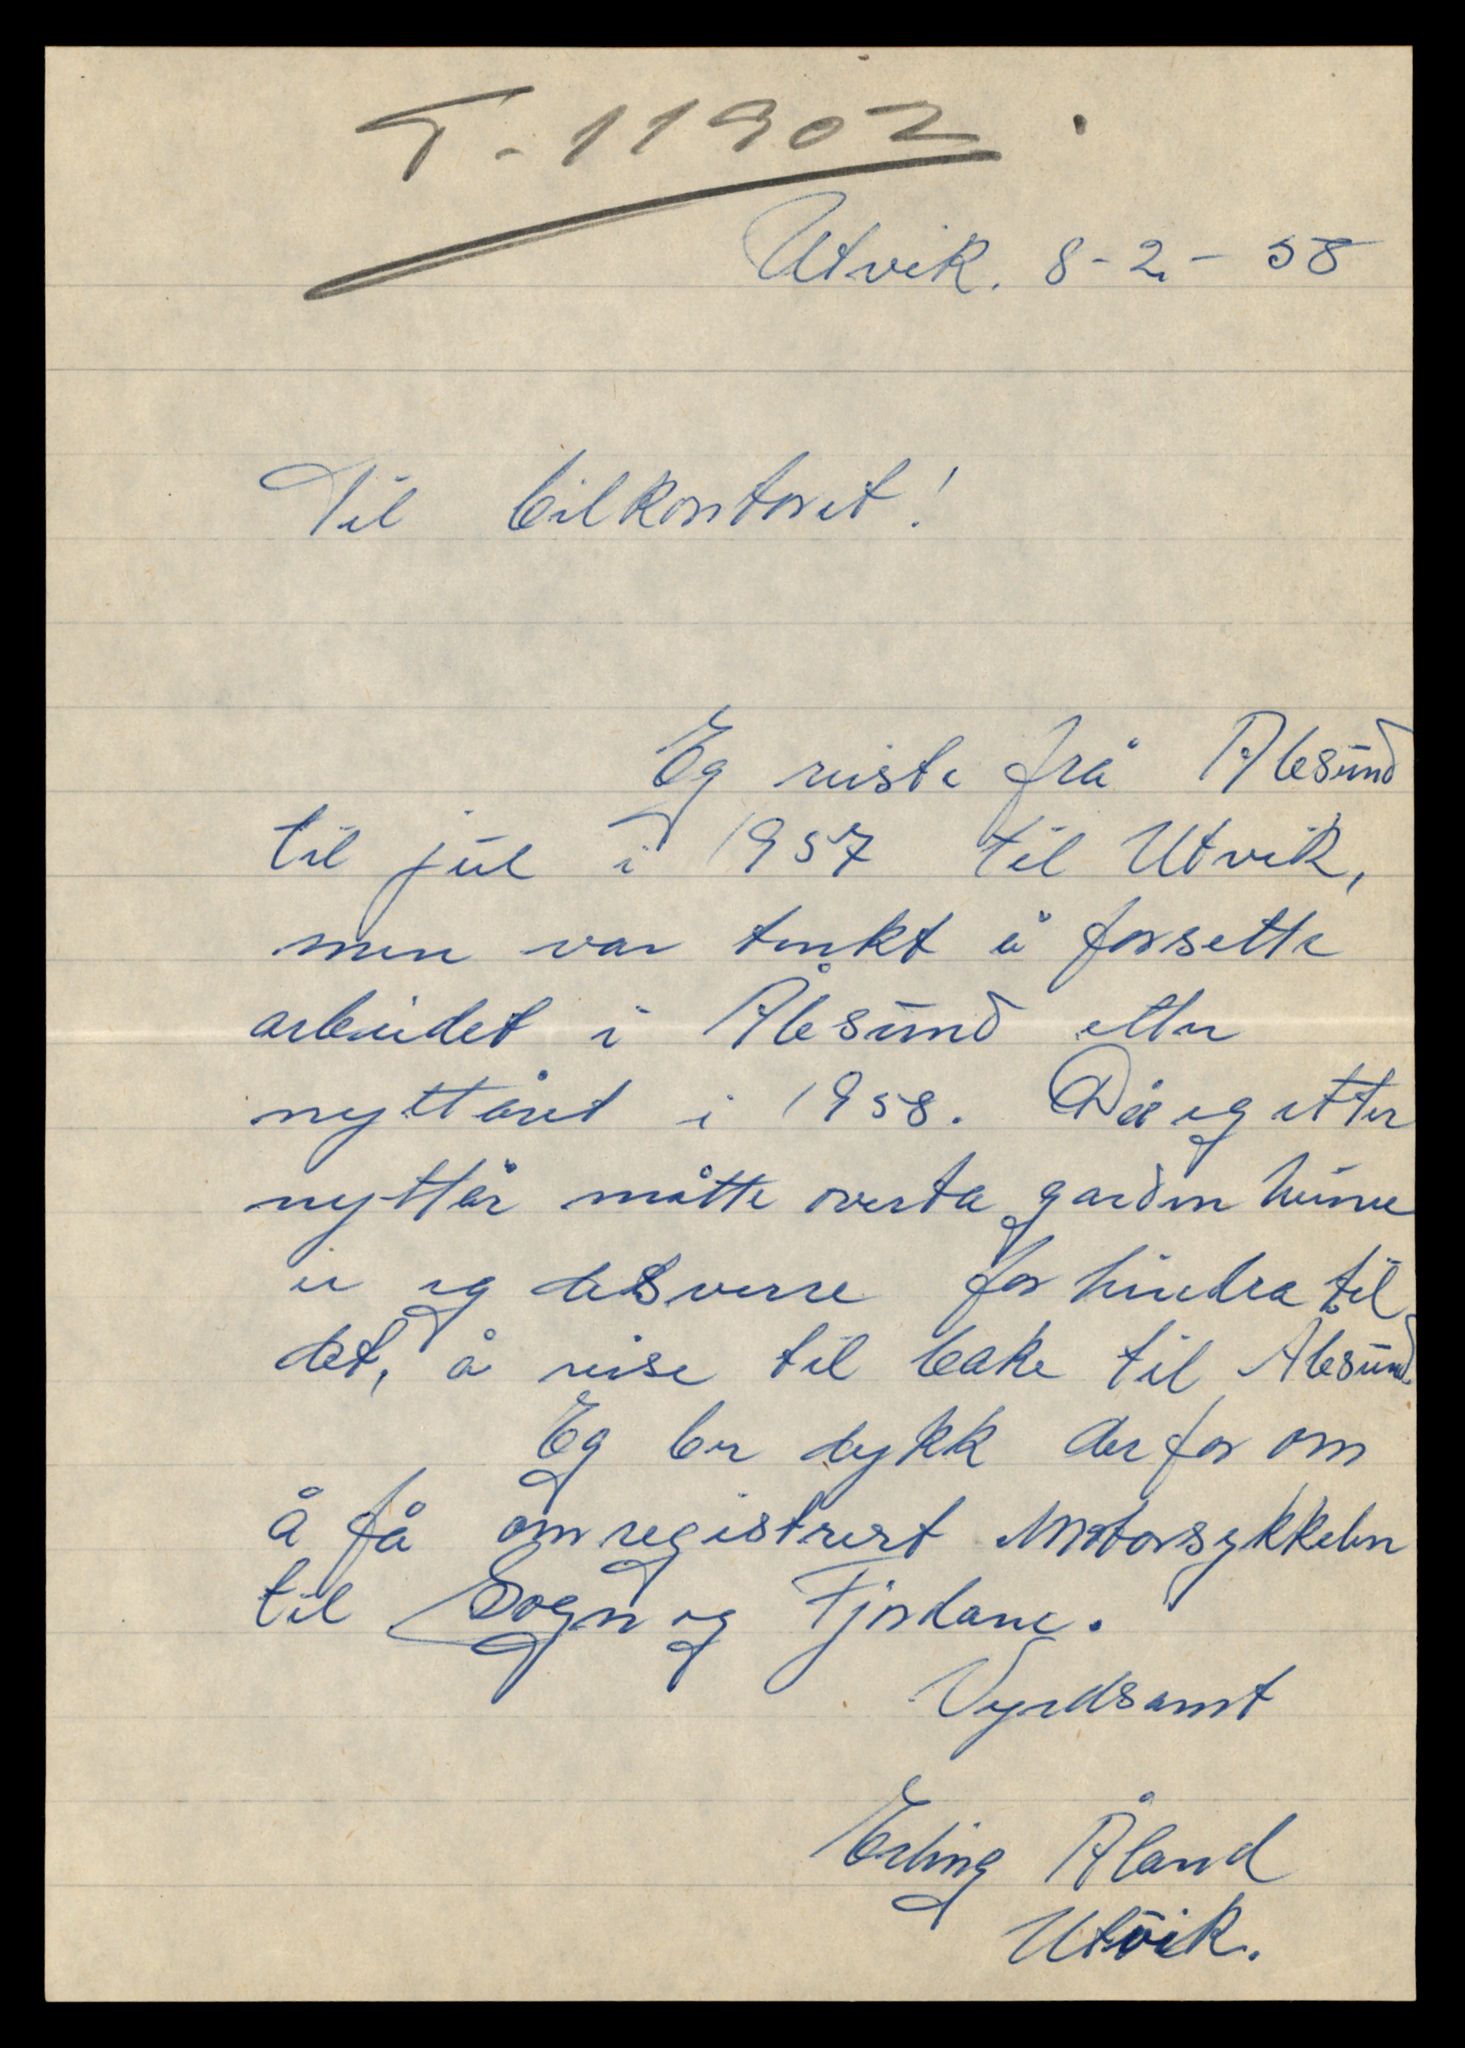 T-11902.
Utvik. 8-2-58
Til bilkontoret!
Eg reiste frå Ålesund
til jul i 1957 til Utvik,
men var tenkt å forsette
arbeidet i Ålesund etter
nyttåret i 1958. Då eg etter
nyttår måtte overta garden heime
er eg desverre forhindra til
det, å reise til bake til Ålesund.
Eg ber dykk derfor om
å få omregistrert Motorsykkelen
til Sogn og Fjordane.
Vyrdsamt
Erling Åland
Utvik.